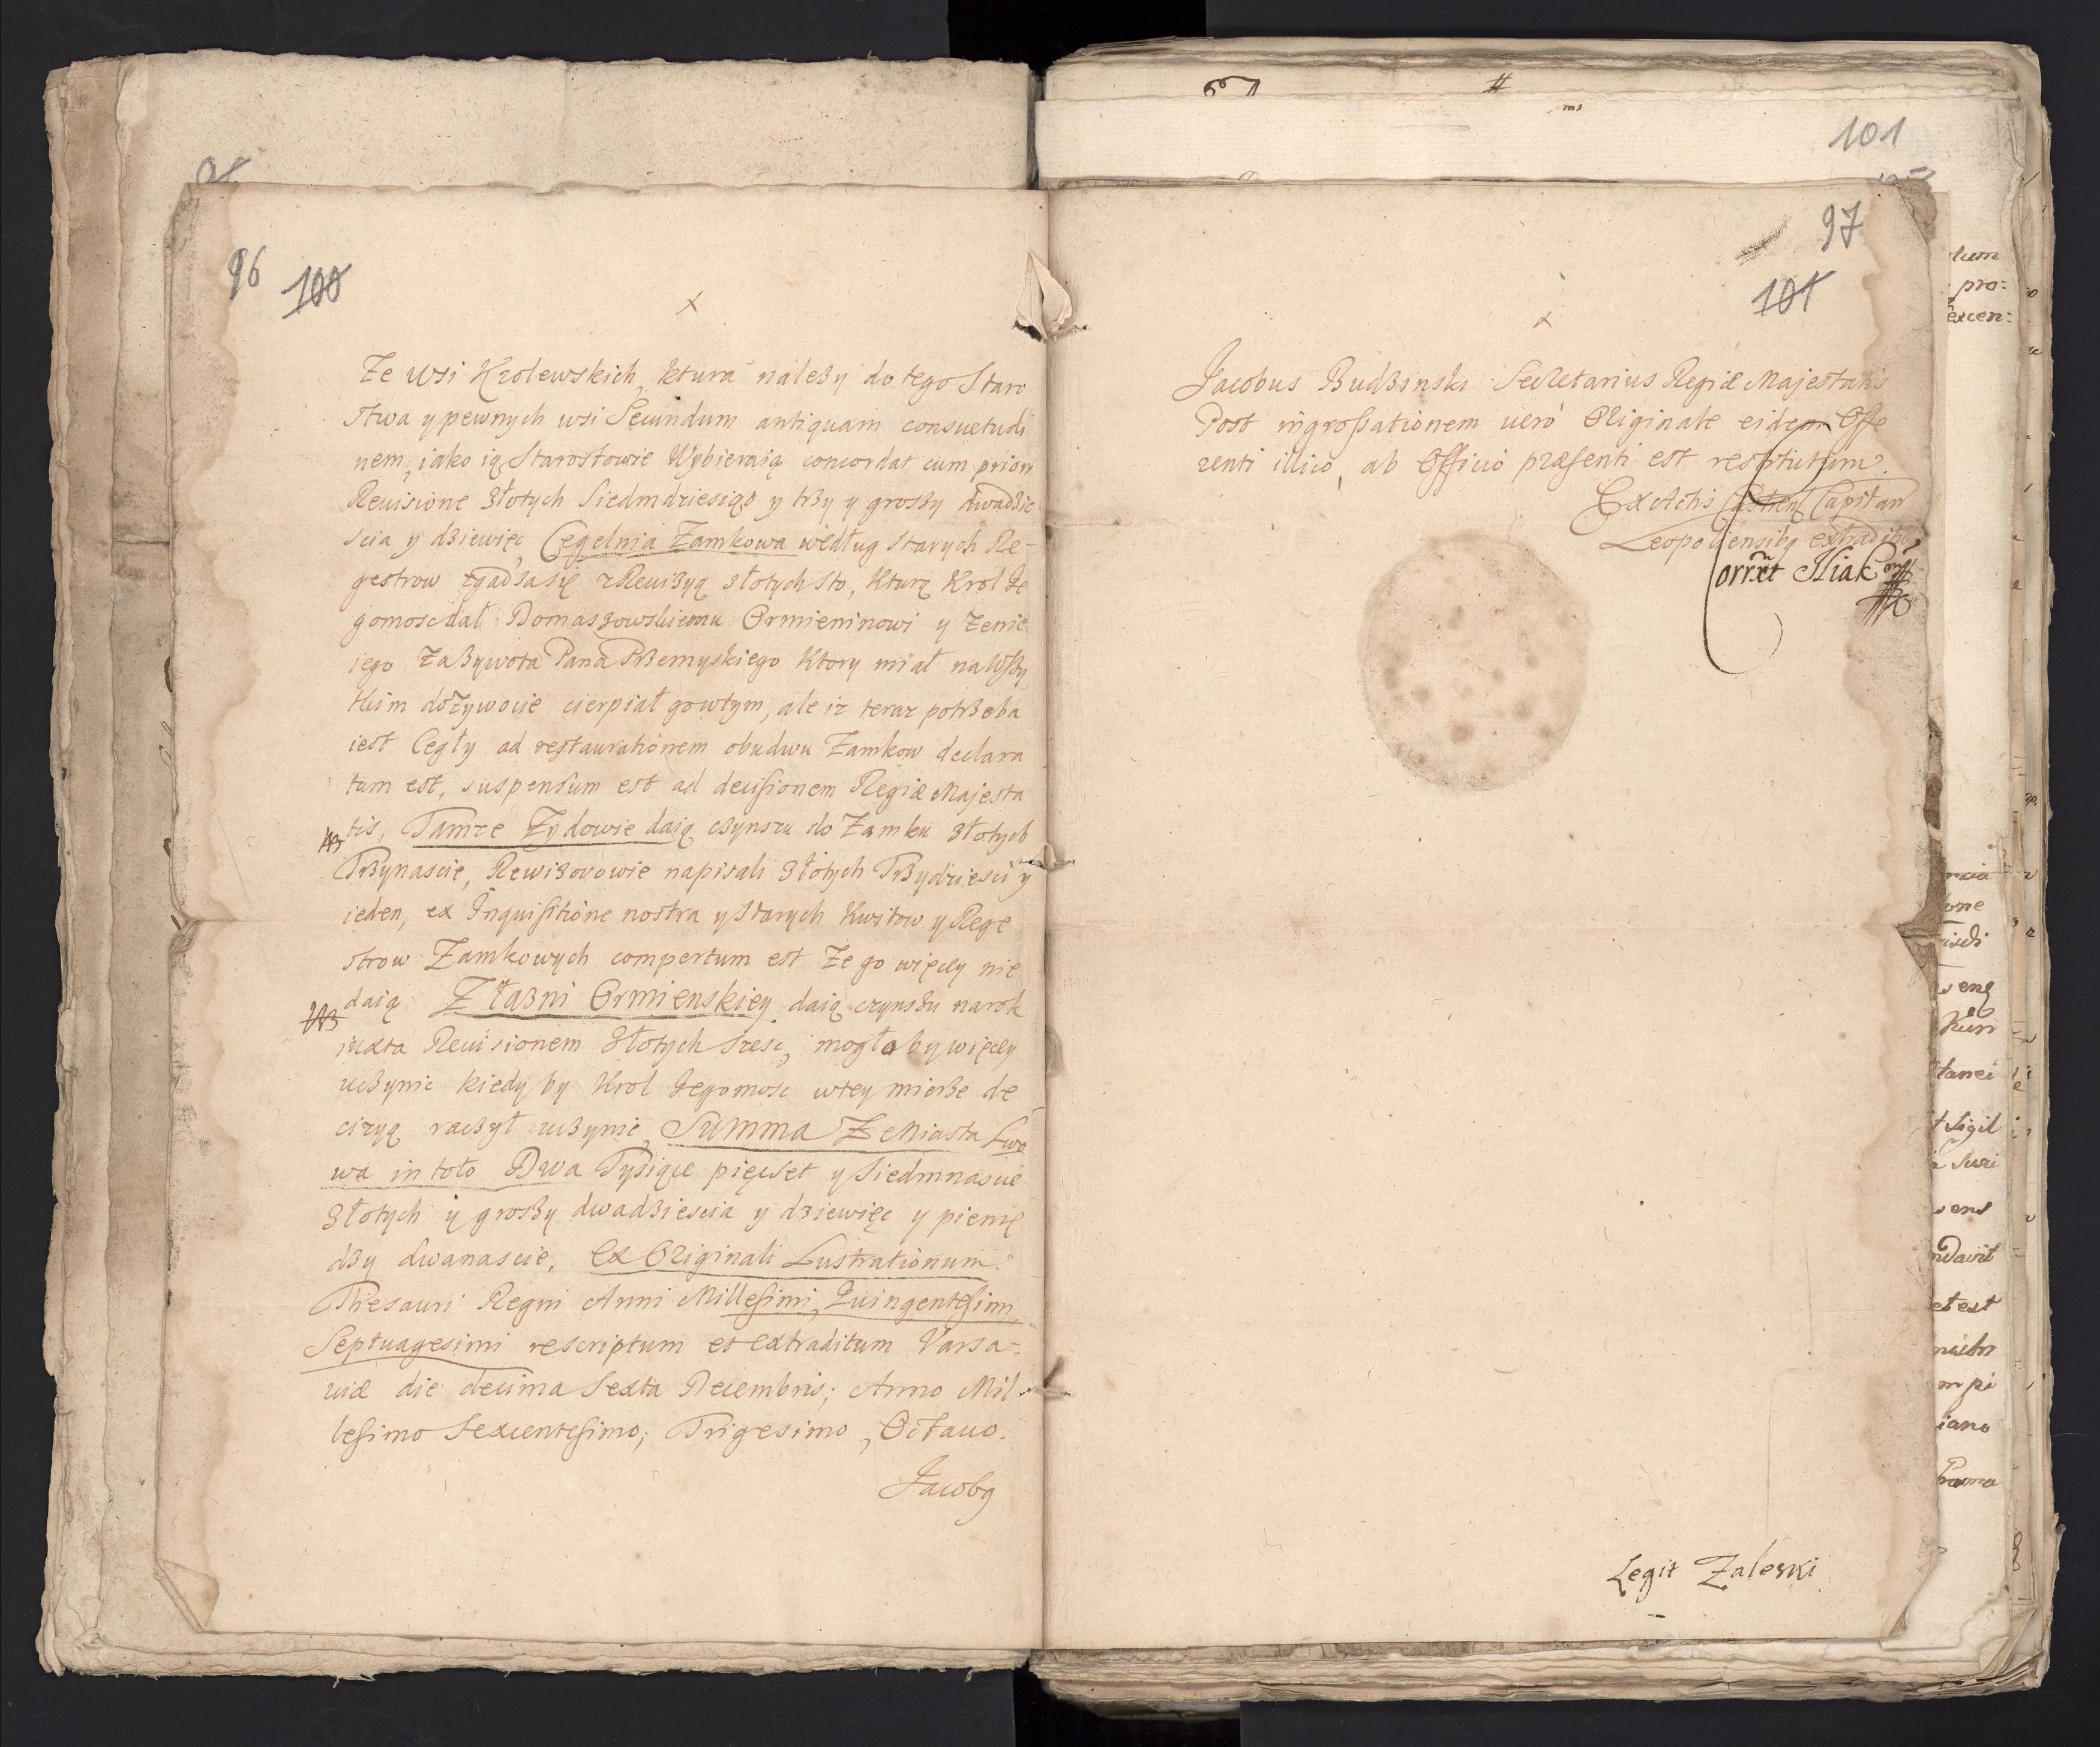 96 100
x
Ze wsi Krolewskich, ktura nalezy do tego Staro
stwa y pewnych wsi Secundum antiquam consuetudi
nem, iako ią Starostowie Wybieraią concordat cum priori
Reuisione złotych Siedmdziesiąt y trzy y groszy dwadzie
scia y dziewięc, Cegelnia Zamkowa według starych Re-
gestrow zgadza się z Reuizyą złotych Sto, Kturę Krol Je
gomosc dał Domaszowskiemu Ormieninowi y zenie
iego za zywota Pana Przemyskiego Ktory miał na wszy
tkim dozywocie cierpiał go wtym, ale iz teraz potrzeba
iest Cegły ad restaurationem obudwu Zamkow declara
tum est, suspensum est ad decisionem Regiæ Majesta
tis, Tamze Zydowie daią czynszu do Zamku złotych
NB
Trzynascie, Rewizorowie napisali złotych Trzydziesci y
ieden, ex Inquisitione nostra y starych Kwitow y Rege
strow Zamkowych compertum est Ze go więcey nie
daią Z Łazni Ormienskiey daią czynszu na rok
NB
iuxta Reuisionem złotych szesc, mogłoby więcey
uczynic kiedy by Krol Jegomosc w tey mierze de
cizyą raczył uczynic, Summa Z Miasta Lwo
wa in toto Dwa Tysiące pięcset y Siedmnascie
złotych y groszy dwadziescia y dziewięc y pienię
dzy dwanascie. Ex Originali Lustrationum
Thesauri Regni Anni Millesimi, Quingentesimi,
Septuagesimi rescriptum et extraditum Varsa-
uiæ die decima Sexta Decembris; Anno Mil-
lesimo Sexcentesimo; Trigesimo, Octauo.
Jacobg
101
97
101
x
Jacobus Budzinski Secretarius Regiæ Majestatis
Post ingrossationem uero Originale eidem Offe
renti illico, ab Officio præsenti est restitutum.
Ex Actis Castren Capitan
Leopoliensibg extraditu
Corrxt Iliak
Legit Zaleski